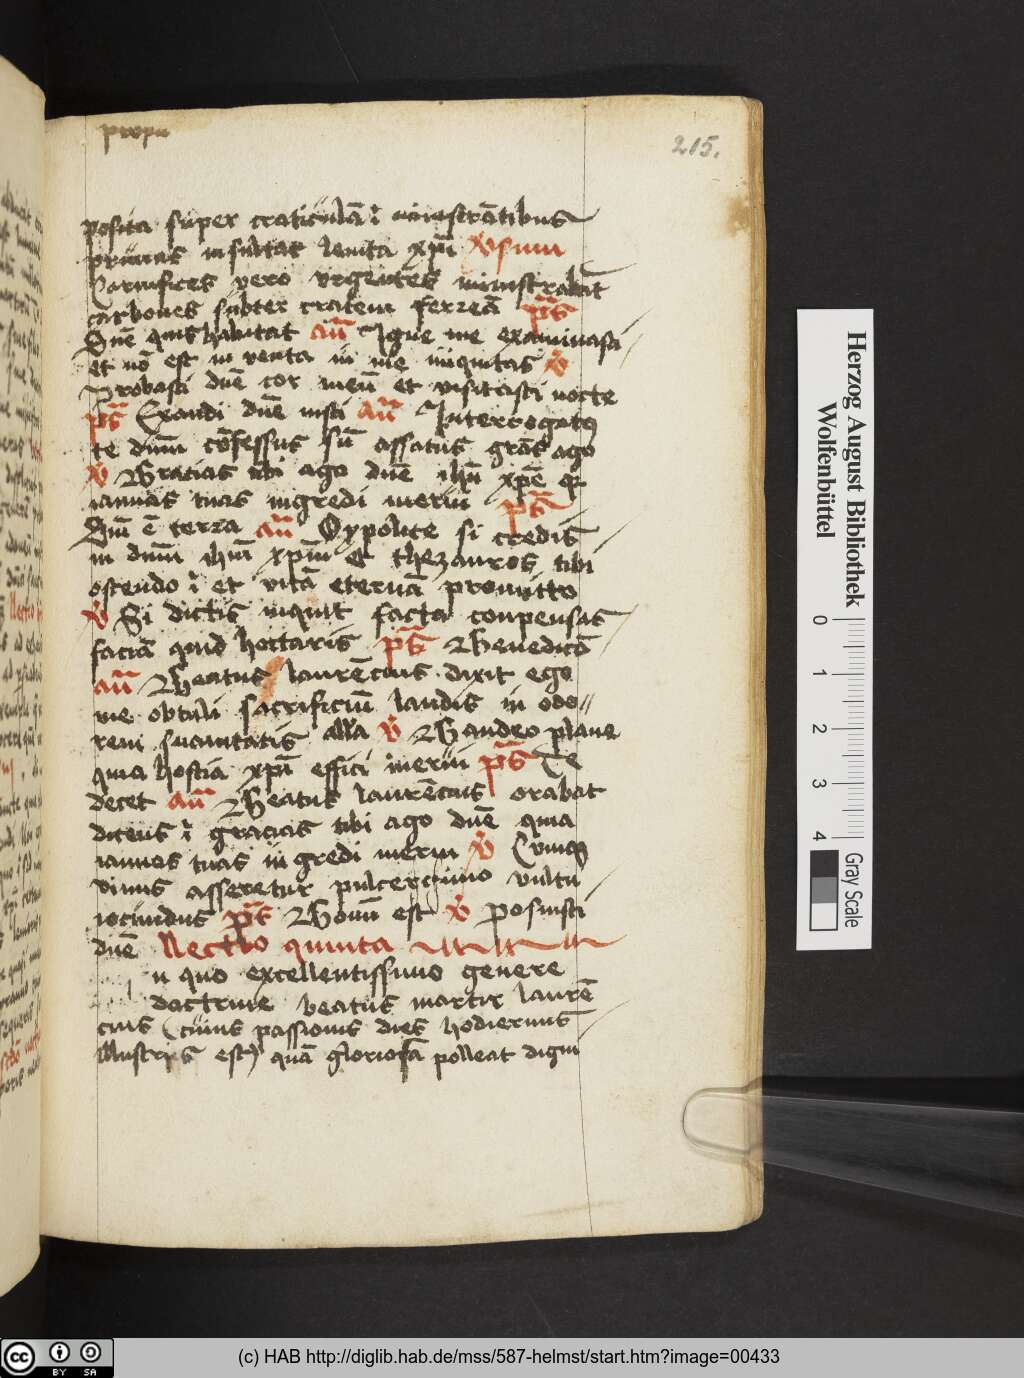 215.
posita super craticulā ĩ ministrātibus
prunas insultat levita xp̄i Ꝟsum
Carnifices vero urgētes ministrabāt
carbones subter cratem ferreā p̄s
Dn̄e quis habitat an̄ Igne me examinasti
et nō est in venta in me iniquitas ꝟ
Probasti dn̄e cor meū et visitasti nocte
p̄s Exaudi dn̄e iusti an̄ Interrogatꝰ
te dnm̄ cōfessus sū assatus grās ago
ꝟ Gracias tibi ago dn̄e ihū xp̄e qꝛ
ianuas tuas ingredi merui p̄s
Dn̄i ē terra an̄ Ypolite si credis
in dnm̄ ihm̄ xp̄m et thezauros tibi
ostendo ĩ et vitā eternā promitto
ꝟ Si dictis inquit facta conpensas
faciā quid hortaris p̄s Benedicā
an̄ Beatus laurēcius dixit ego
me obtuli sacrificiū laudis in odo//
rem suauitatis alla ꝟ Gaudeo plane
quia hostia xp̄i effici merui p̄s Te
decet an̄ Beatus laurēcius orabat
dicens ĩ gracias tibi ago dn̄e quia
ianuas tuas in gredi merui ꝟ Cumqꝫ
vinus asseretur pulcerrimo vultu
iocundus p̄s Bonū est ꝟ Posuisti
dn̄e Lectio quinta
n quo excellentissimo genere
doctrine beatus martir laurē
cius (cuius passionis dies hodiernus
illustris est) quā gloriosa polleat digni
Herzog August Bibliothek
Wolfenbüttel
0 1 2 3 4
Gray Scale
cc BY SA
(c) HAB http://diglib.hab.de/mss/587-helmst/start.htm?image=00433